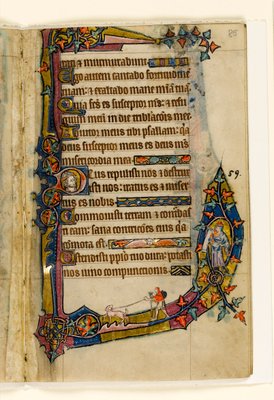 85
rati & murmurabunt
Ego autem cantabo fortitudinē
tuam: & exaltabo mane miām tuā
Quia fcs es susceptor ms: & refu
gium meum in die tribulacōis mee
Adiutor meus tibi psallam: quia
deus susceptor meus es deus ms
misericordia mea
Deus repulisti nos & destrux
isti nos: iratus es & miser
tus es nobis
59.
Commouisti terram & conturbas
ti eam: sana contriciones eius qā
commota est
Ostendisti pplo tuo dura: potasti
nos uino compunctionis